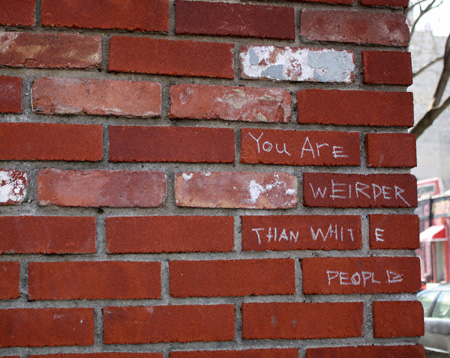 You ARE
WEIRDER
THAN WHITE
PEOPLE